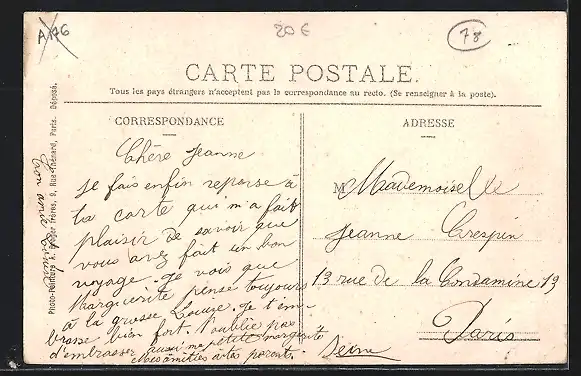 A176
20 €
78
CARTE POSTALE.
Tous les pays étrangers n'acceptent pas la correspondance au recto. (Se renseigner à la poste).
CORRESPONDANCE
Chère Jeanne
Je fais enfin reponse à
ta carte qui m'a fait
plaisir de savoir que
vous avez fait un bon
voyage. Je vois que
Marguerite pense toujours
à la grosse Louise. Je t'em-
brasse bien fort. N'oublie pas
d'embrasser aussi ma petite marguerite
Mes amitiés à tes parents.
Ton amie Louise
ADRESSE
M Mademoiselle
Jeanne Crespin
13 rue de la Condamine 13
Paris
Seine
Photo-Peinture A. frères, 9, Rue Thénard, Paris. Déposé.